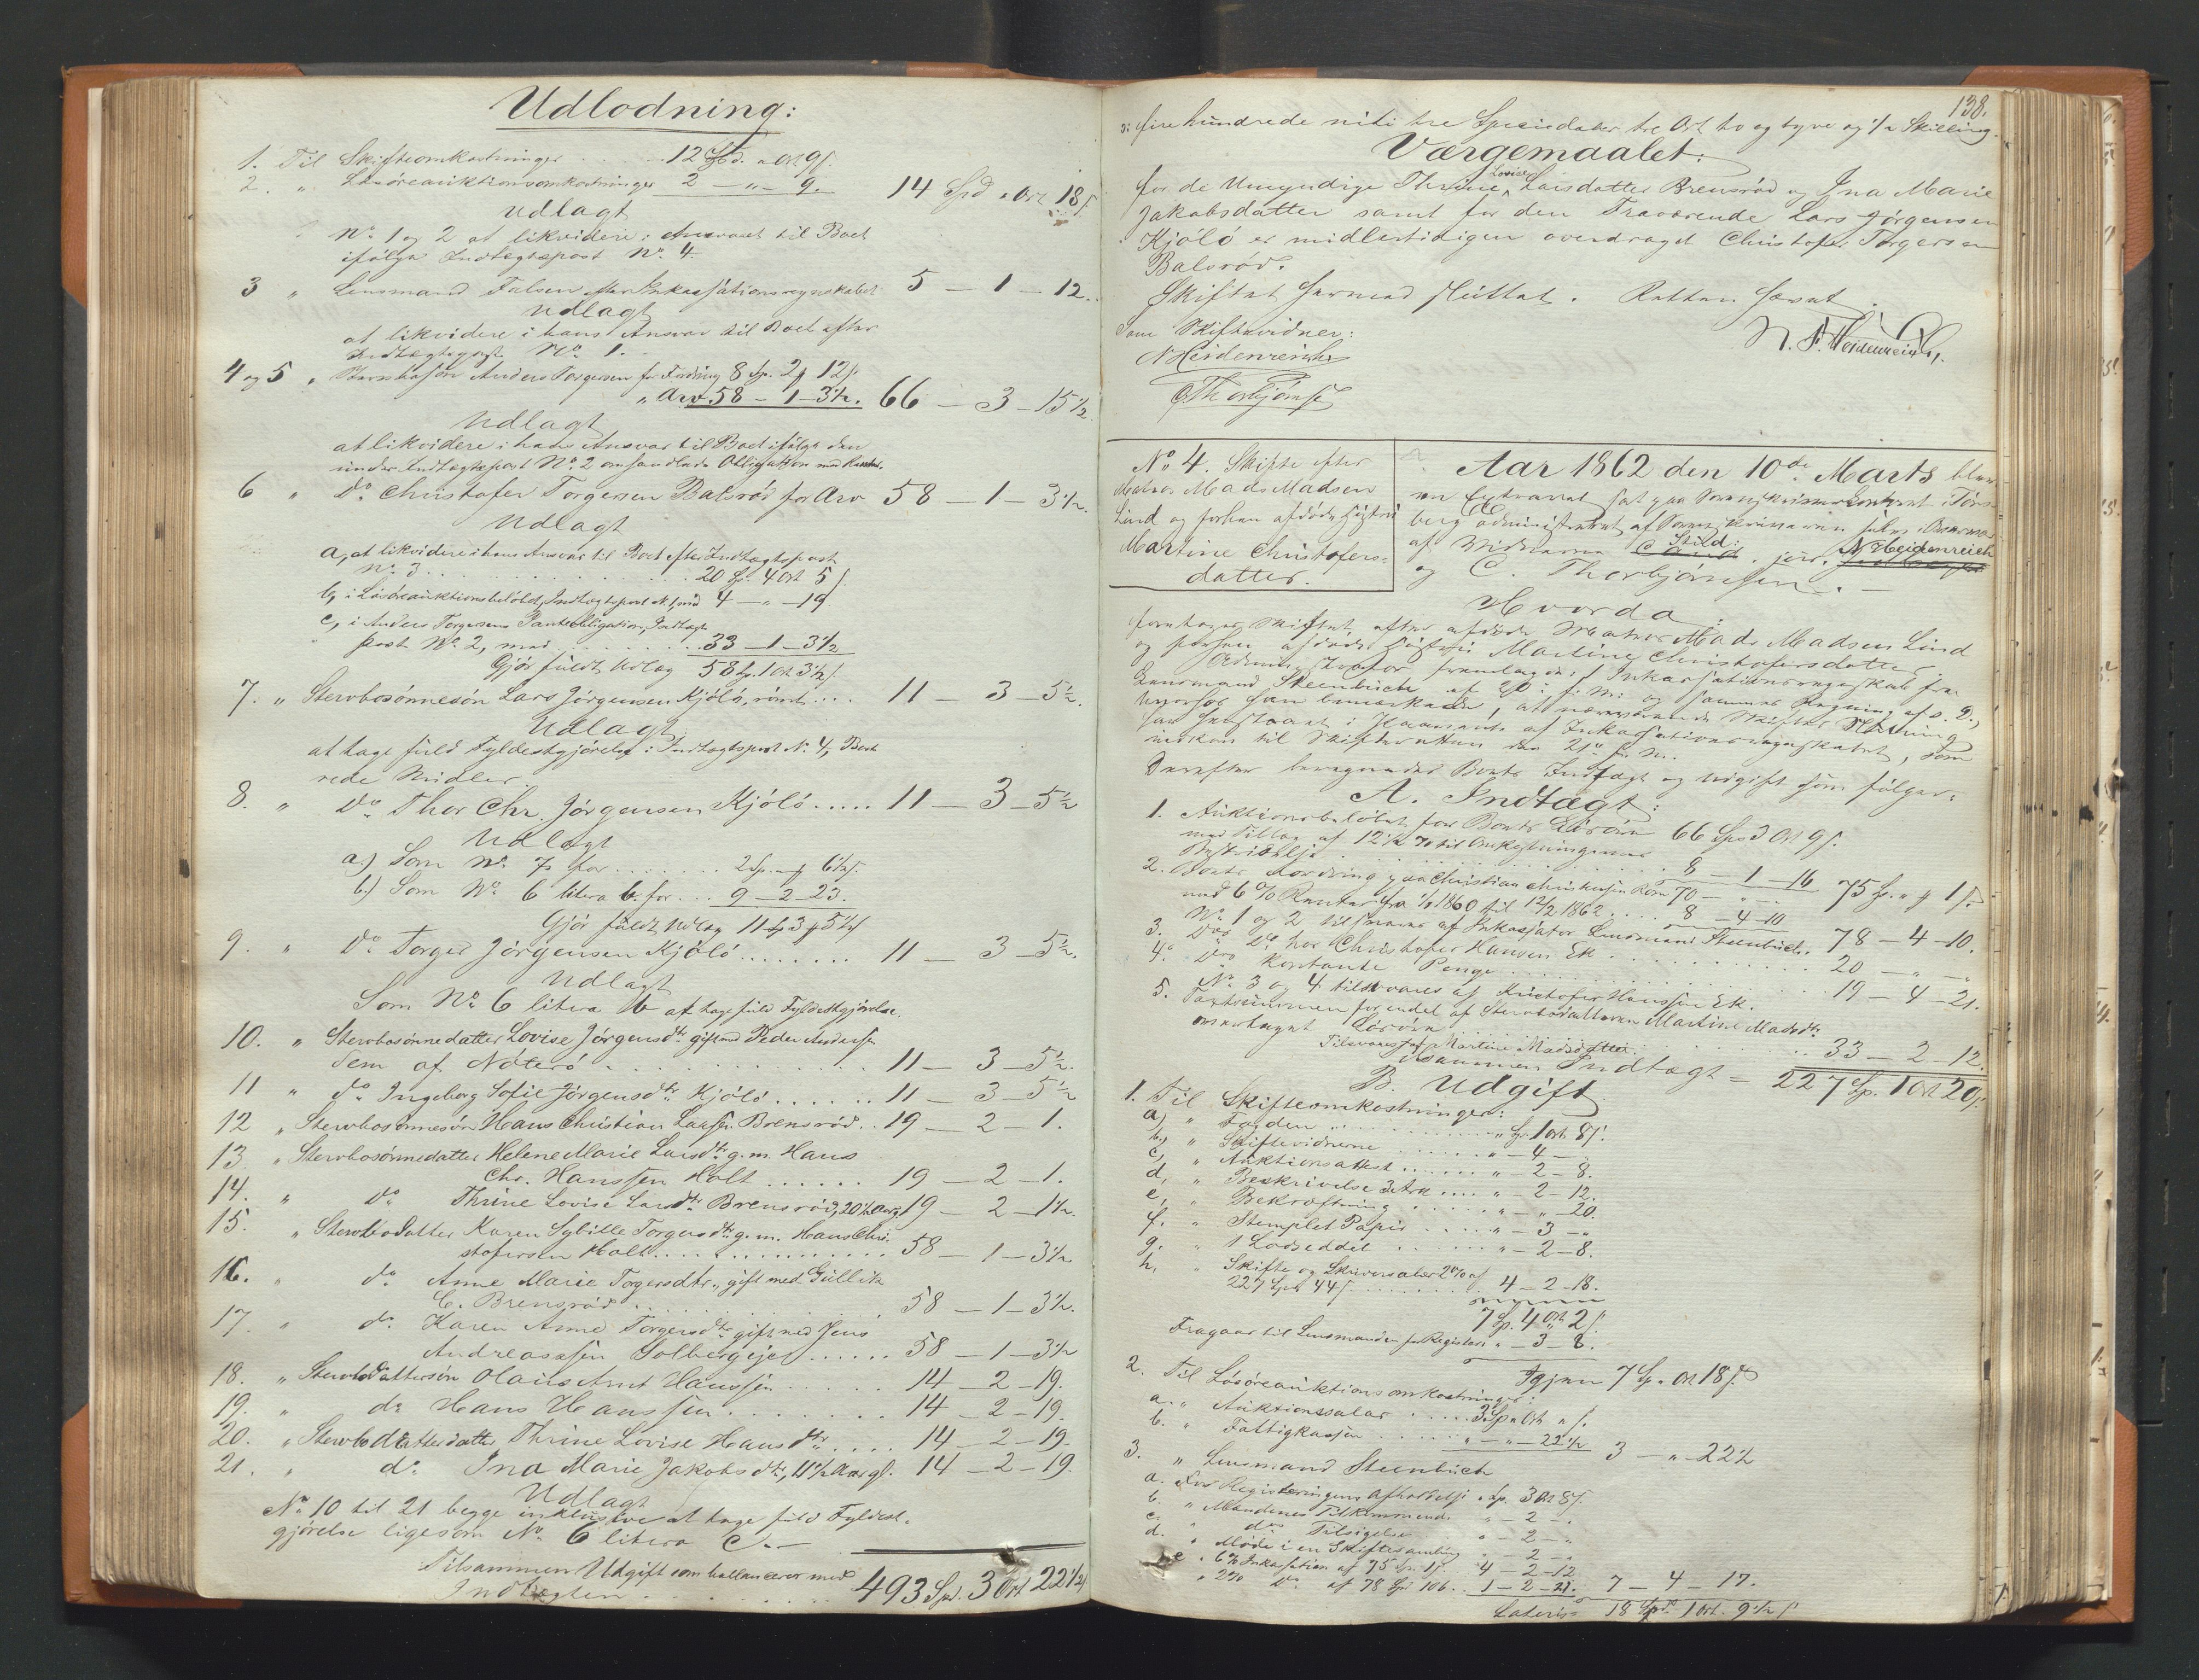 Udlodning:
1. Til Skifteomkostninger . . . . . 12 Spd. " Ort 9 s.
2. " Løsøreauktionsomkostninger 2 — " — 9. 14 Spd " Ort 18 s.
Udlagt
No. 1 og 2 at likvidere i Ansvaret til Boet
ifølge Indtægtspost No. 4.
3 " Lensmand Falsen efter Inkassationsregnskabet 5 — 1 — 12.
Udlagt
at likvidere i hans Ansvar til Boet efter
Indtægtspost No. 1.
4 og 5 " Stervbosøn Anders Torgersen for Fordring 8 Sp. 2 12 s.
" Arv 58 — 1 — 3 1/2. 66 — 3 — 15 1/2
Udlagt
at likvidere i hans Ansvar til Boet ifølge den
under Indtægtspost No. 2 omhandlede Obligation med Renter.
6 " do Christofer Torgersen Balsrød for Arv 58 — 1 — 3 1/2.
Udlagt
a, at likvidere i hans Ansvar til Boet efter Indtægtspost
No. 3 . . . . . . . . . . . . 20 Sp. 4 Ort 5 s.
b, i Løsøreauktionsbeløbet, Indtægtspost No. 1, med 4 — " — 19.
c, i Anders Torgersens Panteobligation, Indtægts
post No. 2, med . . . . . . . . 33 — 1 — 3 1/2
Gjør fuldt Udlæg 58 Sp. 1 Ort 3 1/2 s.
7. " Stervbosønnesøn Lars Jørgensen Kjøló, rømt . . . 11 — 3 — 5 1/2.
Udlagt
at tage fuld Fyldestgjørelse i Indtægtspost No. 4, Boets
rede Midler.
8. " do Thor Chr. Jørgensen Kjøló . . . . . 11 — 3 — 5 1/2
Udlagt
a.) Som No. 7 for . . . . . . . 2 Sp. 6 1/2 s.
b.) Som No. 6 litera b. for . . . 9 — 2 — 23.
Gjør fuldt Udlæg 11 3 5 1/2
9. " do Torger Jørgensen Kjøló . . . . . . . . 11 — 3 — 5 1/2.
Udlagt
Som No. 6 litera b at tage fuld Fyldestgjørelse.
10. " Stervbosønnedatter Lovise Jørgensdtr. gift med Peder Andersen
Sem af Nøterø . . . . . . . . . . . 11 — 3 — 5 1/2.
11 " do Ingeborg Sofie Jørgensdtr. Kjøló . . . . . . 11 — 3 — 5 1/2
12 " Stervbosønnesøn Hans Christian Larsen Brensrød . . 19 — 2 — 1.
13. " Stervbosønnedatter Helene Marie Larsdtr. g. m. Hans
Chr. Hanssen Holt . . . . . . 19 — 2 — 1.
14. " do Thrine Lovise Larsdtr. Brensrød, 20 1/2 Aar gl 19 — 2 — 1 1/2.
15. " Stervbodatter Karen Sybille Torgersdtr. g. m. Hans Chri-
stofersen Holt . . . . . . . . . . . 58 — 1 — 3 1/2
16. " do Anne Marie Torgersdtr., gift med Gullik
C. Brensrød . . . . . . . . . . . . 58 — 1 — 3 1/2.
17. " do Karen Anne Torgersdtr. gift med Jens
Andreassen Solbergejet . . . . . . 58 — 1 — 3 1/2
18. " Stervbodattersøn Olaus Amt Hanssen . . . . . 14 — 2 — 19.
19. " do Hans Hanssen . . . . . . . . 14 — 2 — 19.
20. " Stervbodatterdatter Thrine Lovise Hansdtr . . . . 14 — 2 — 19.
21. " do Ina Marie Jakobsdtr., 11 1/2 Aar gl. 14 — 2 — 19.
Udlagt
No. 10 til 21 begge inklusive at tage fuld Fyldest-
gjørelse ligesom No. 6 litera c. —
Tilsammen Udgift som ballancerer med
Indtægten . . . . . . . . . . . 493 Spd. 3 Ort 22 1/2
138.
: fire hundrede niti tre Speciedaler tre Ort to og tyve og 1/2 Skilling.
Værgemaalet:
for de Umyndige Thrine Lovise Larsdatter Brensrød og Ina Marie
Jakobsdatter samt for den Fraværende Lars Jørgensen
Kjøló er midlertidigen overdraget Christofer Torgersen
Balsrød.
Skiftet hermed sluttet. Retten hævet.
N. F. Heidenreich.
Som Skiftevidner:
N Heidenreich
C Thorbjørnsen
No. 4. Skifte efter
Matros Mads Madsen
Lind og forhen afdøde Hustru
Martine Christofers-
datter.
Aar 1862 den 10de Marts blev
en Extraret sat paa Sorenskriverkontoret i Tøns-
berg administreret af Sorenskriveren selv i Overvær
af Vidnerne Skild: jun. N Heidenreich
og C. Thorbjørnsen. —
Hvorda
foretoges Skiftet efter afdøde Matros Mads Madsen Lind
og forhen afdøde Hustru Martine Christofersdatter.
Administrator fremlagde: Inkassationsregnskab fra
Lensmand Steenbuch af 20 f. M. og sammes Regning af s. D.,
hvorhos han bemærkede, at nærværende Skiftes Slutning
har henstaaet i Paavente af Inkassationsregnskabet, som
indkom til Skifteretten den 21de f. M.
Derefter beregnedes Boets Indtægt og Udgift som følger:
A. Indtægt:
1. Auktionsbeløbet for Boets Løsøre 66 Spd 3 Ort 9 s.
med Tillæg af 12 1/2 % til Omkostningernes
Bestridelse . . . . . . . . . 8 — 1 — 16 75 Sp. " 1 s.
2. Boets Fordring paa Christian Christensen Røm 70 — " —
med 6 % Renter fra 1/1 1860 til 12/2 1862 . . . 8 — 4 — 10 78 — 4 — 10.
No. 1 og 2 tilsvares af Inkassator Lensmand Steenbuch.
3. Dos do hos Christofer Hansen Ek . . . . . . . . 20 — " — "
4. Dos kontante Penge . . . . . . . . . . . . 19 — 4 — 21.
No. 3 og 4 tilsvares af Kristofer Hanssen Ek.
5. Taxtsummen for endel af Stervbodatteren Martine Madsdtr.
overtaget Løsøre . . . . . . . . . . . . 33 — 2 — 12.
Tilsvares af Martine Madsdatter.
Tilsammen Indtægt = 227 Sp. 1 Ort 20 s.
B. Udgift
1. Til Skifteomkostninger:
a) " Fogden . . . . . . . . " Sp. 1 Ort 8 s.
b, " Skiftevidnerne . . . . . . " — 4 — "
c, " Auktionsattest . . . . . . " — 2 — 8.
d, " Beskrivelse 3 Ark . . . . " — 2 — 12.
e, " Bekræftning . . . . . " — " — 20.
f. " Stemplet Papir . . . . . " — 3 — "
g. " 1 Lodseddel . . . . . . " — 2 — 8.
h, " Skifte og Skriversalær 2 % af
227 Spd. 44 s. . . . . . . . . 4 — 2 — 18.
7 Sp. 4 Ort 2 s.
Fragaar til Lensmanden for Registr. " — 3 — 8.
Igjen 7 Sp. " Ort 18 s.
2. Til Løsøreauktionsomkostninger:
a. " Auktionssalær . . . . . 3 Sp " Ort " s.
b. " Fattigkassen . . . . . . " — " — 22 1/2 3 — " — 22 1/2
3. " Lensmand Steenbuch
a. For Registreringens Afholdelse " Sp. 3 Ort 8 s.
b. " Mændenes Tilkommende " — 2 — "
c. " des Tilsigelse . . . " — 2 — "
d. " Møde i en Skiftesamling " — 2 — "
e " 6 % Inkassation af 75 Spd 1 s. 4 — 2 — 12
" 2 % do. af 78 Spd 106 . . 1 — 2 — 21. 7 — 4 — 17.
Lateris = 18 Spd. 1 Ort. 9 1/2 s.